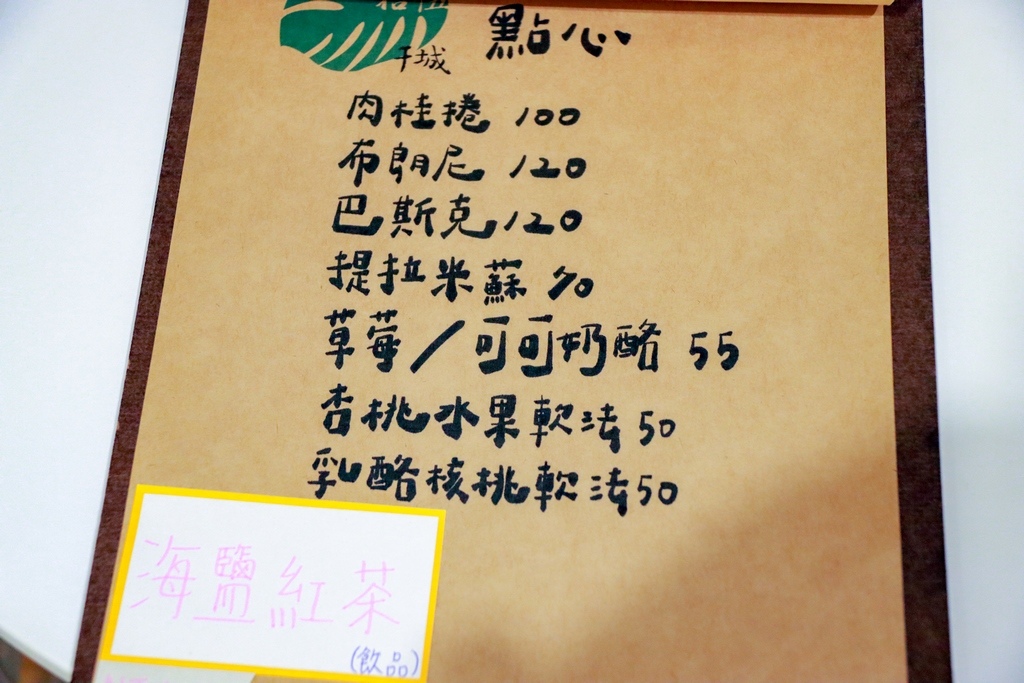 干城
點心
肉桂捲 100
布朗尼 120
巴斯克 120
提拉米蘇 90
草莓/可可奶酪 55
杏桃水果軟法 50
乳酪核桃軟法 50
海鹽紅茶
(飲品)